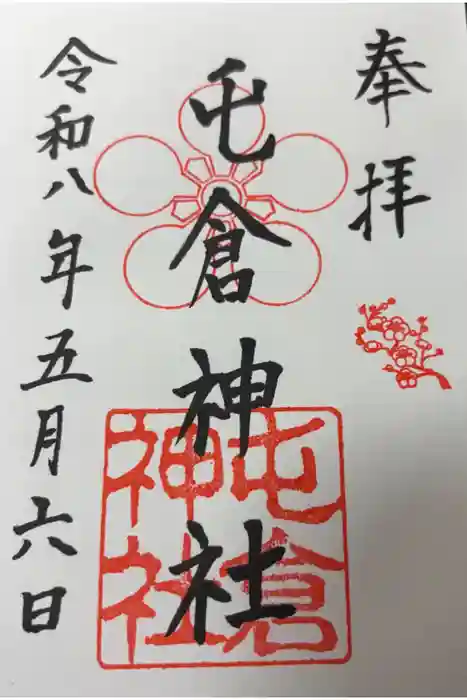 奉拝
屯倉神社
屯倉神社
令和八年五月六日